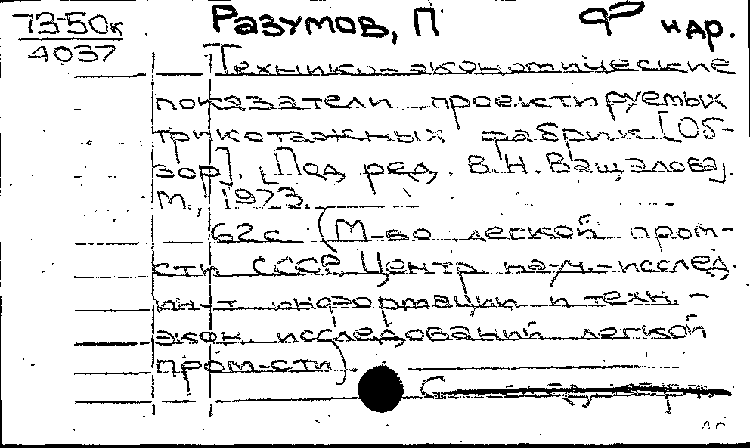 73-50к Разумов, П нар.
4037
Технико-экономические
показатели проектируемых
трикотажных фабрик [Об-
зор]. [Под ред. В.Н. Ващалова].
М., 1973.
62 с. (М-во легкой пром-
сти СССР. Центр. науч.-исслед.
ин-т информации и техн.-
экон. исследований легкой
пром-сти).